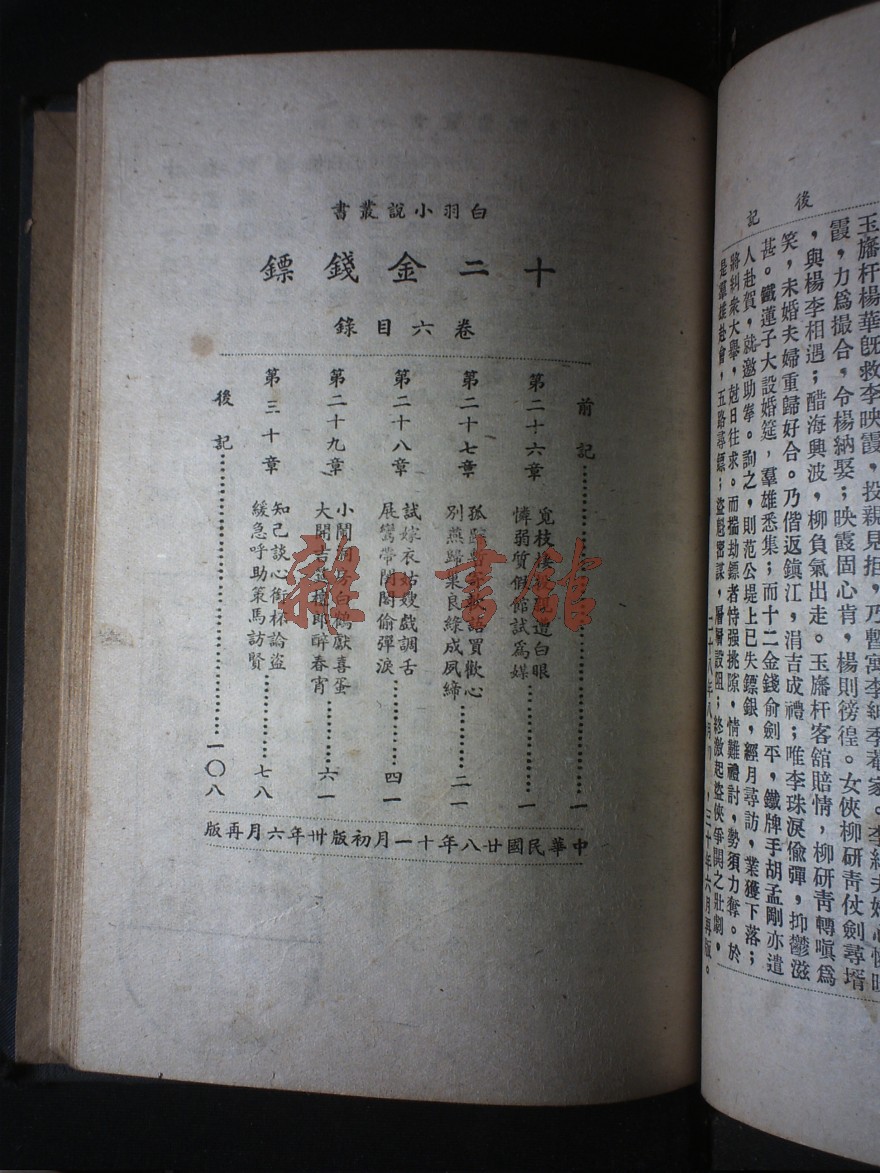 後記
玉旛杆楊華旣救李映霞,投親見拒,乃暫寓李季菴家。李夫婦心憐映
霞,力爲撮合,令楊納娶;映霞固心肯,楊則徬徨。女俠柳研靑仗劍尋壻
,與楊李相遇;醋海興波,柳負氣出走。玉旛杆客舘賠情,柳研靑轉嗔爲
笑,未婚夫婦重歸好合。乃偕返鎭江,涓吉成禮;唯李珠淚偸彈,抑鬱滋
甚。鐵蓮子大設婚筵,羣雄悉集;而十二金錢俞劍平,鐵牌手胡孟剛亦遣
人赴賀,就邀助拳。詢之,則范公堤上已失鏢銀,經月尋訪,業獲下落;
將糾衆大舉,尅日往求。而揣劫鏢者恃强挑隙,情難禮討,勢須力奪。於
是羣雄赴會,五路尋鏢;盜魁密謀,層層設阻;終激起盜俠爭鬥之壯劇。
二十八年八月,三十年六月再版。
白羽小說叢書
十二金錢鏢
卷六目錄
前記……一
第二十六章 覓枝棲遭白眼
憐弱質假館試爲媒……一
第二十七章 孤語買歡心
別燕歸巢良緣成夙締……二一
第二十八章 試嫁衣姑嫂戲調舌
展鸞帶閨閣偷彈淚……四一
第二十九章 小鬧洞房白鶴獻喜蛋
大開吉筵檀郎醉春宵……六一
第三十章 知己談心銜杯論盜
緩急呼助策馬訪賢……七八
後記……一〇八
中華民國廿八年十一月初版卅年六月再版
雜·書館